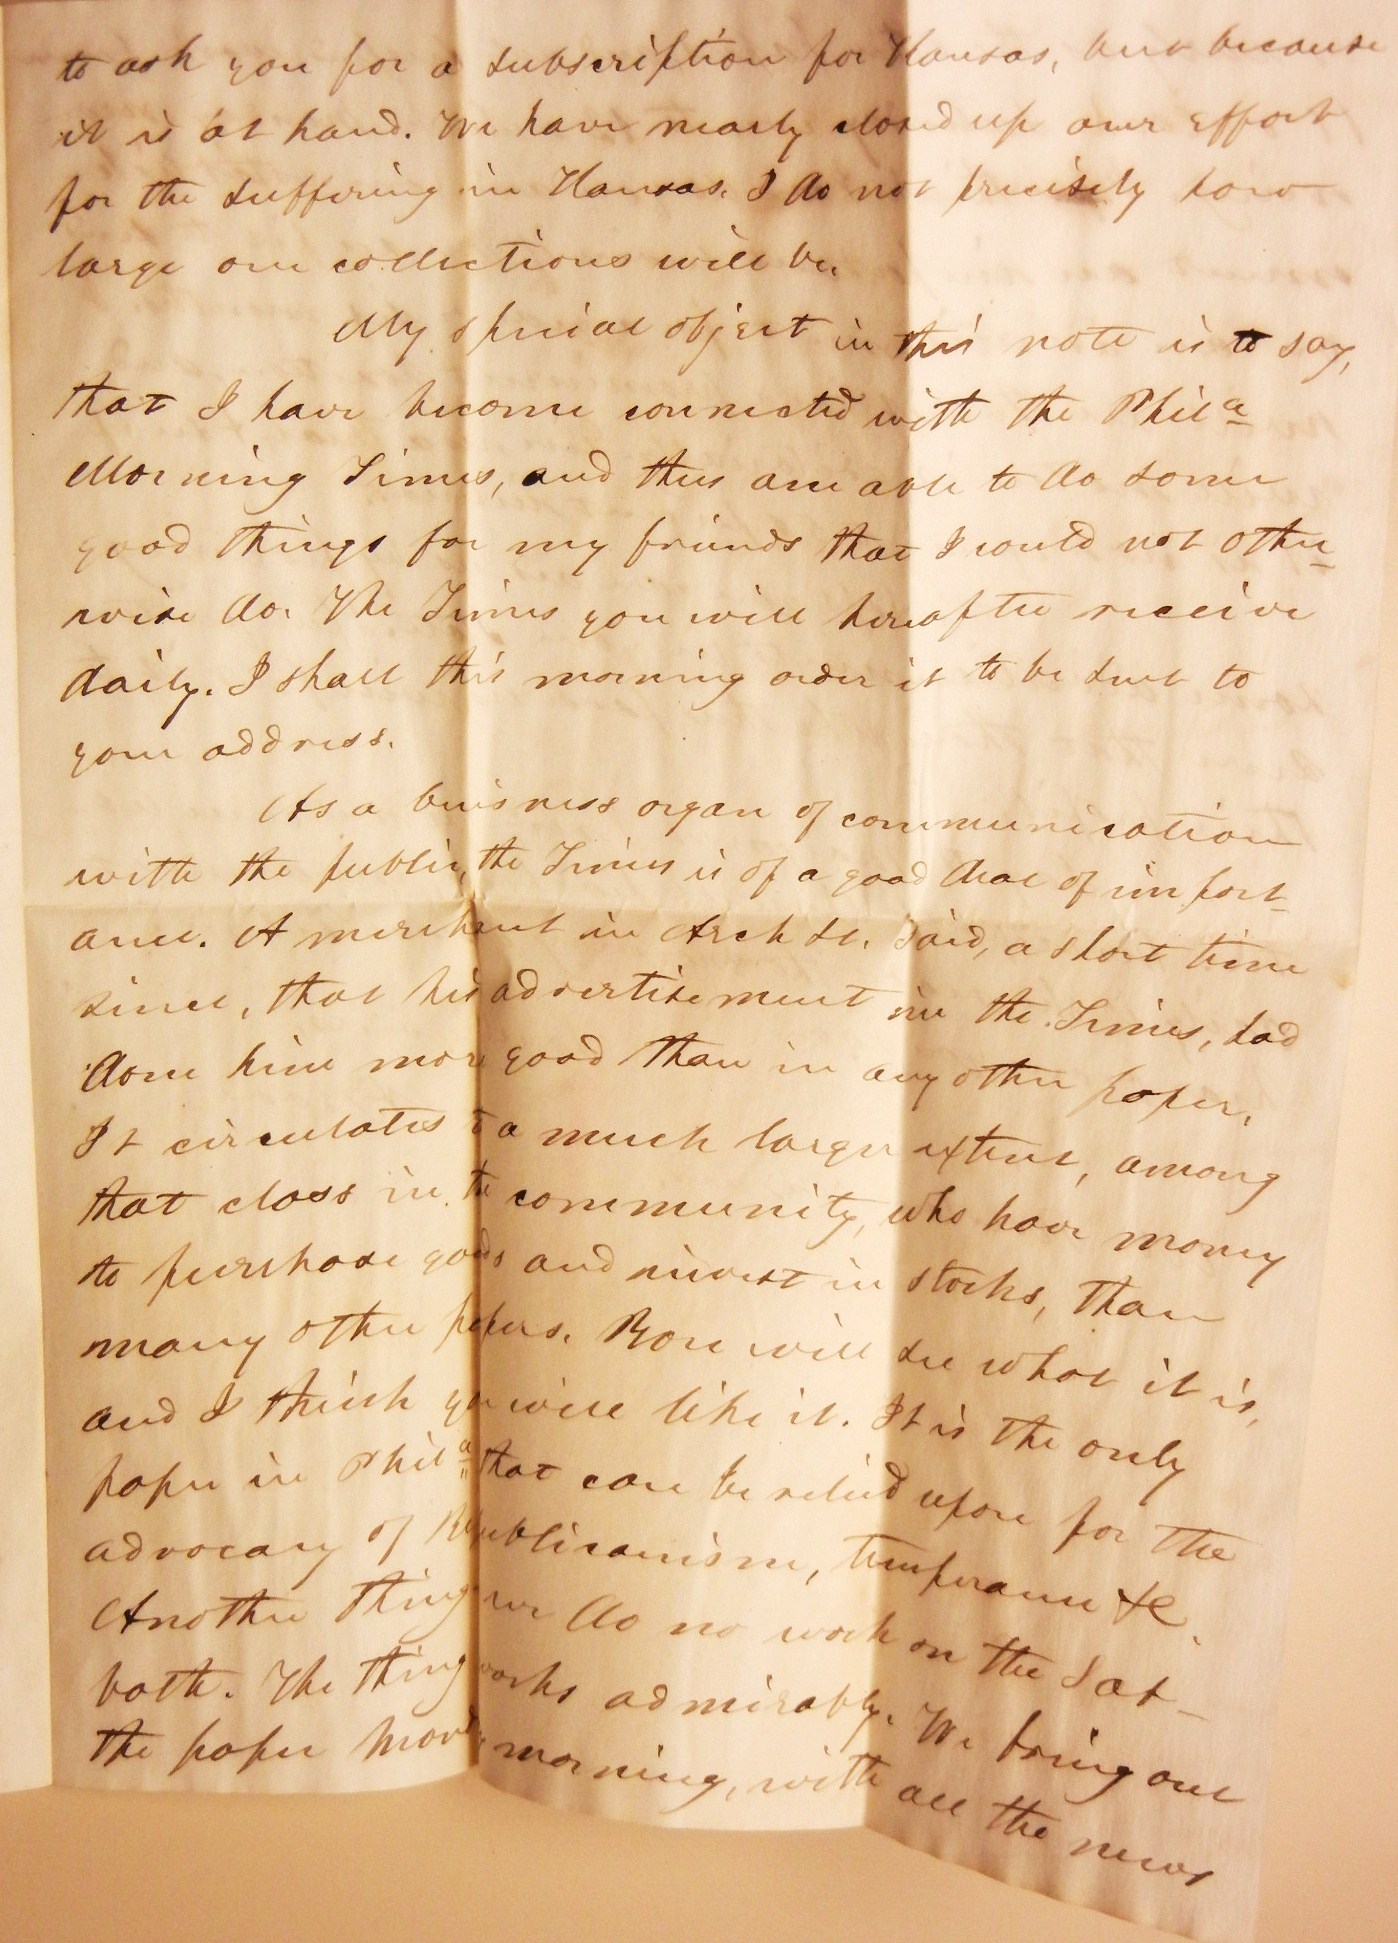 to ask you for a subscription for Kansas, but because
it is at hand. We have nearly closed up our effort
for the suffering in Kansas. I do not precisely how
large our collections will be.
My special object in this note is to say,
that I have become connected with the Phila
Morning Times, and thus am able to do some
good things for my friends that I would not other-
wise do. The Times you will hereafter receive
daily. I shall this morning order it to be sent to
your address.
As a buisness organ of communication
with the public, the Times is of a good deal of import-
ance. A merchant in Arch St. said, a short time
since, that his advertisement in the Times, had
done him more good than in any other paper.
It circulates to a much larger extent, among
that class in the community, who have money
to purchase goods and invest in stocks, than
many other papers. You will see what it is,
and I think you will like it. It is the only
paper in Phila that can be relied upon for the
advocacy of Republicanism, temperance &c.
Another thing we do no work on the Sab-
bath. The thing works admirably. We bring out
the paper Monday morning, with all the news